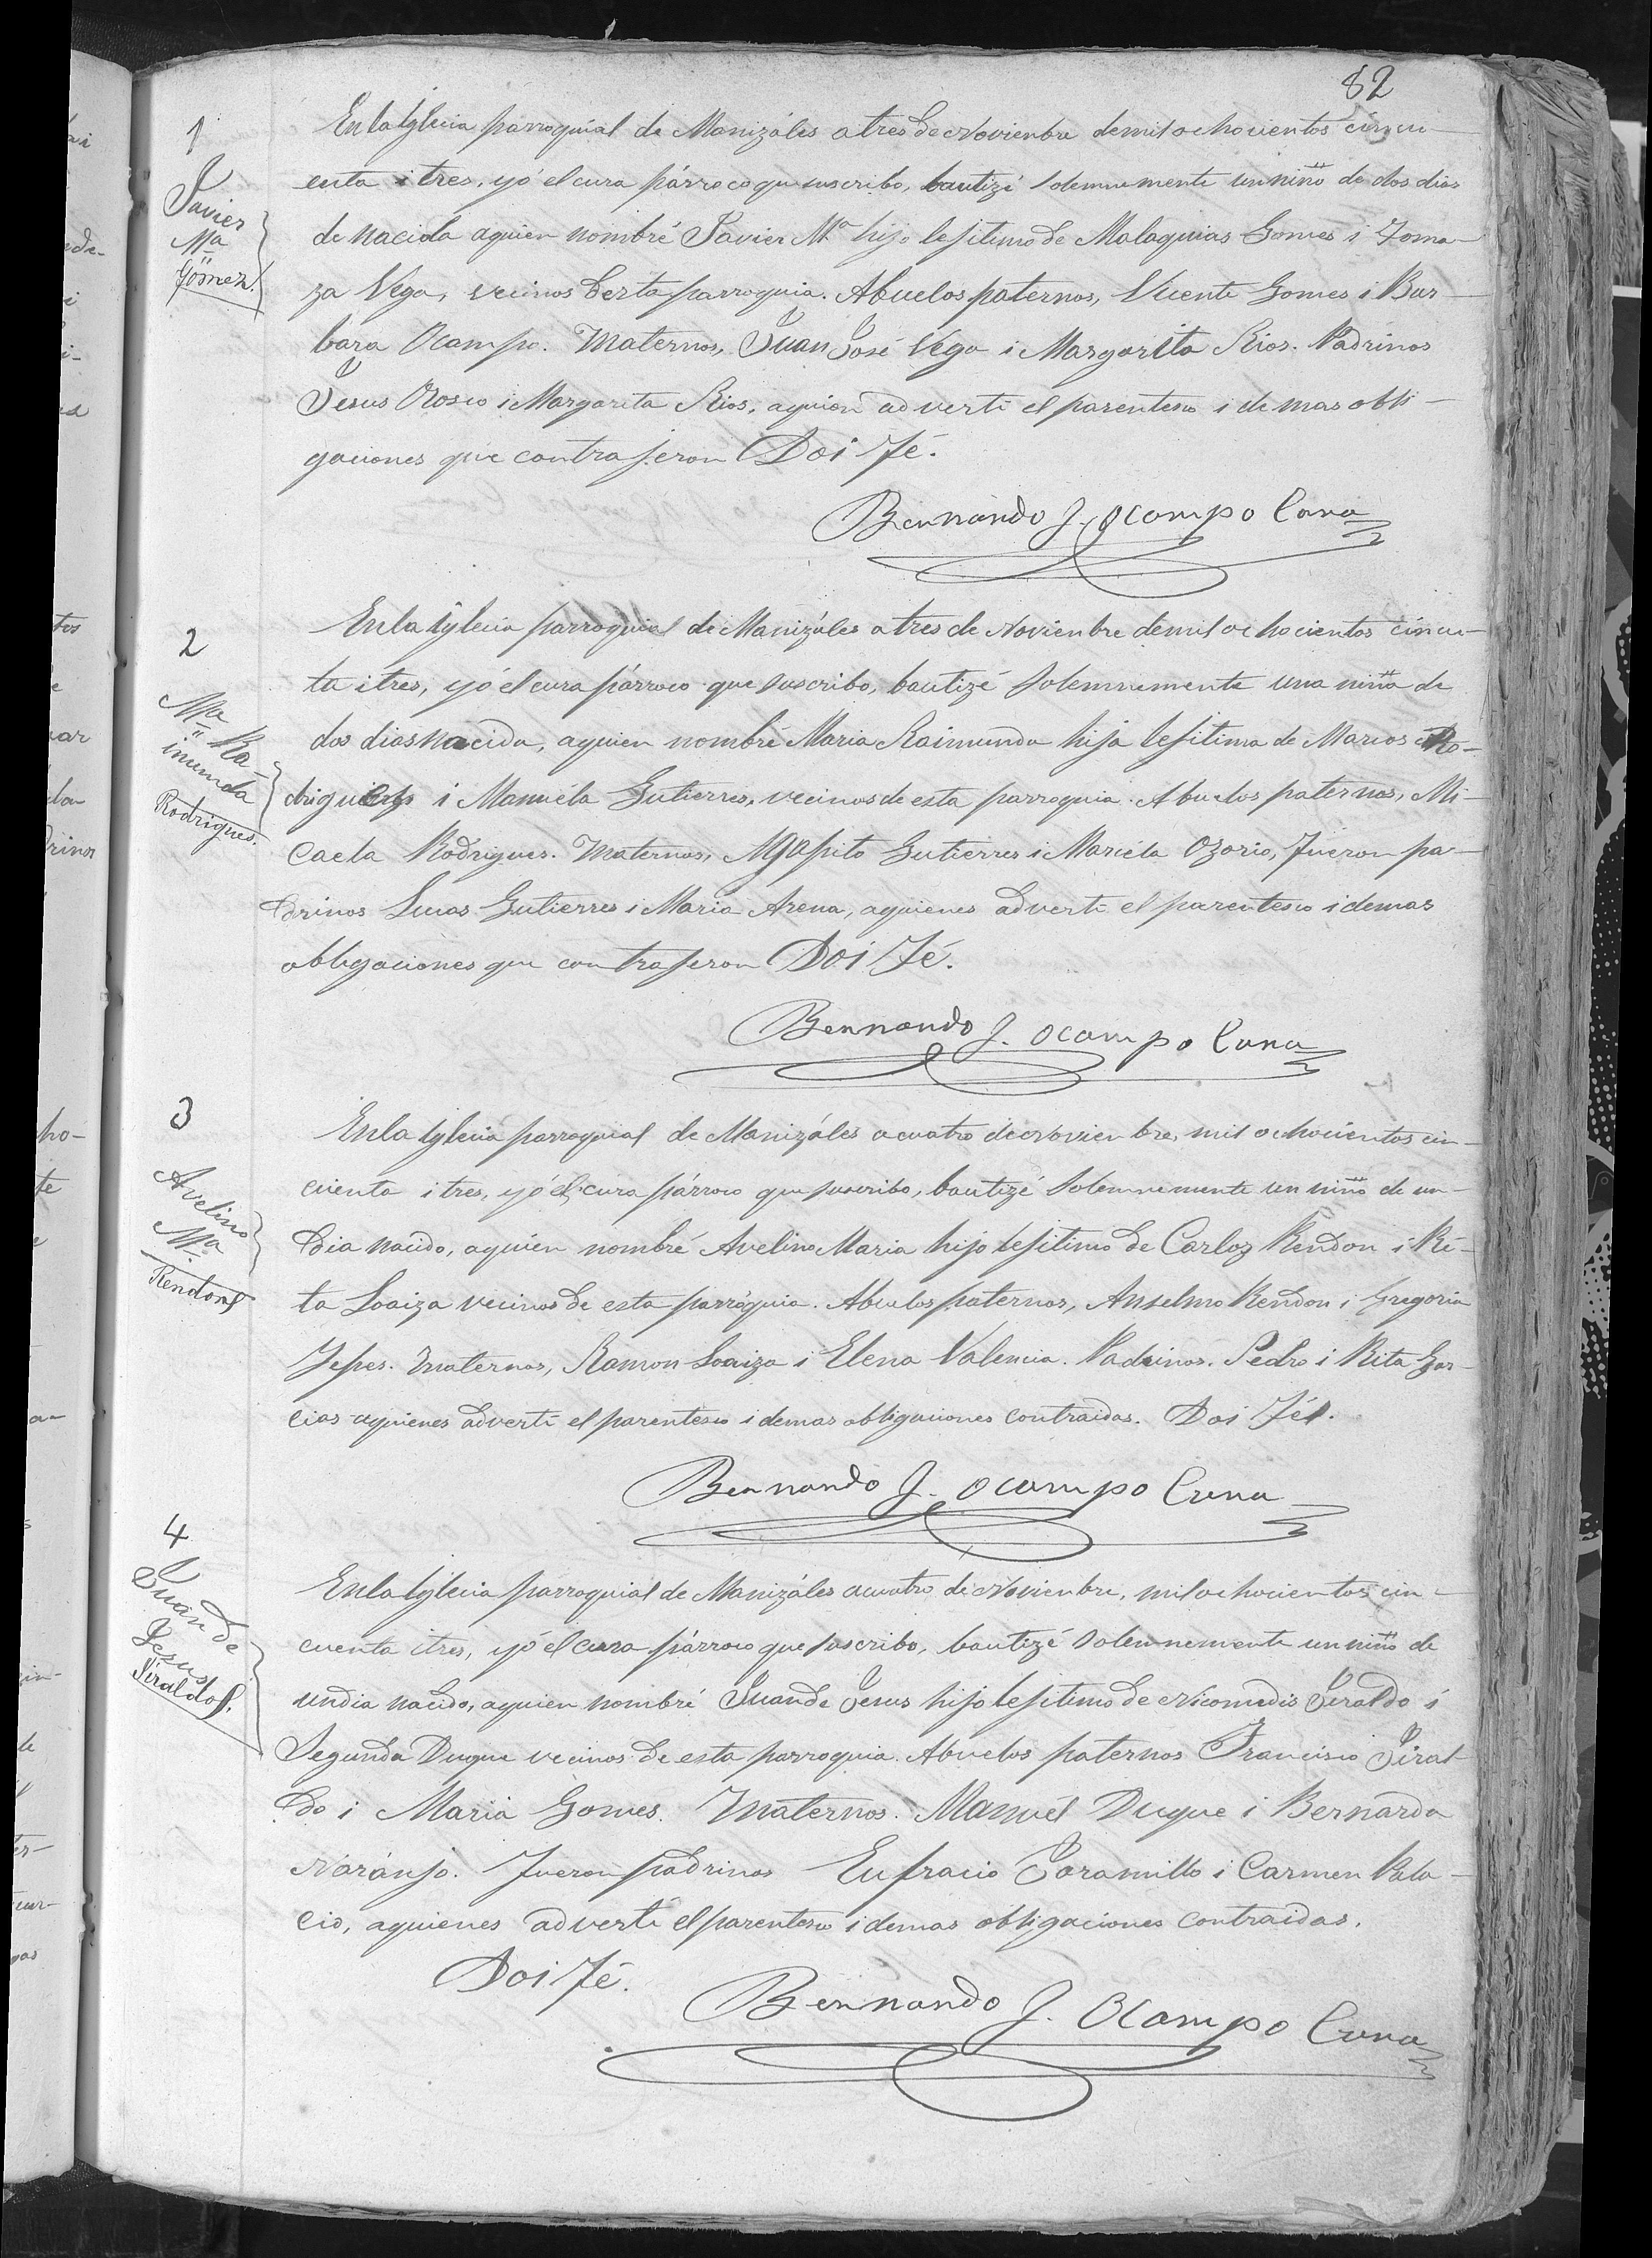 82
1
Javier
Mª
Gómez.
En la Yglecia parroquial de Manizáles a tres de Novienbre de mil ochocientos cincu-
enta i tres, yó el cura párroco que suscribo, bautizé solemnemente un niño de dos dias
de nacida aquien nombré Javier Mª hijo lejitimo de Malaquias Gomes i Toma-
za Vega, vecinos desta parroquia. Abuelos paternos, Vicente Gomes i Bar-
bara Ocampo. Maternos, Juan José Vega i Margarita Rios. Padrinos
Jesus Orosco i Margarita Rios, aquien adverti el parentesco i demas obli-
gaciones que contrajeron Doi Fé.
Bernardo J. Ocampo Cura
2
Mª Ra-
imunda
Rodrigues.
En la Yglecia parroquial de Manizáles a tres de Novienbre de mil ochocientos cincu-
ta i tres, yó él cura párroco que suscribo, bautizé solemnemente una niña de
dos dias nacida, aquien nombré Maria Raimunda hija lejitima de Marcos Ro-
drigues i Manuela Gutierres, vecinos de esta parroquia. Abuelos paternos, Mi-
caela Rodrigues. Maternos, Agapito Gutierres i Mariela Ozorio, Fueron pa-
drinos Lucas Gutierres i Maria Arena, aquienes adverti el parentesco i demas
obligaciones que contrajeron Doi Fé.
Bernardo J. Ocampo Cura
3
Avelino
Mª
Rendon
En la Yglecia parroquial de Manizáles a cuatro de Novienbre, mil ochocientos cin-
cuenta i tres, yó él cura párroco que suscribo, bautizé solemnemente un niño de un
dia nacido, aquien nombré Avelino Maria hijo lejitimo de Carloz Rendon i Ri-
ta Loaiza vecinos de esta parróquia. Abuelos paternos, Anselmo Rendon i Gregoria
Jepes. Maternos, Ramon Loaiza i Elena Valencia. Padrinos. Pedro i Rita Gar-
cias aquienes adverti el parentesco i demas obligaciones contraidas. Doi Fé.
Bernardo J. Ocampo Cura
4
Juan de
Jesus
Jiraldo.
En la Yglecia parroquial de Manizáles a cuatro de Novienbre, mil ochocientos cin-
cuenta i tres, yó el cura párroco que suscribo, bautizé solemnemente un niño de
un dia nacido, aquien nombré Juan de Jesus hijo lejitimo de Nicomedis Jiraldo i
Segunda Duque vecinos de esta parroquia. Abuelos paternos Francisco Jiral-
do i Maria Gomes. Maternos. Manuel Duque i Bernarda
Naranjo. Fueron padrinos Eufracio Jaramillo i Carmen Pala-
cio, aquienes adverti el parentesco i demas obligaciones contraidas.
Doi Fé.
Bernardo J. Ocampo Cura